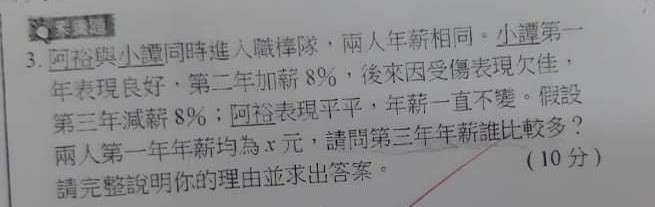 3. 阿裕與小譚同時進入職棒隊，兩人年薪相同。小譚第一
年表現良好，第二年加薪 8%，後來因受傷表現欠佳，
第三年減薪 8%；阿裕表現平平，年薪一直不變。假設
兩人第一年年薪均為 x 元，請問第三年年薪誰比較多？
請完整說明你的理由並求出答案。 (10 分)